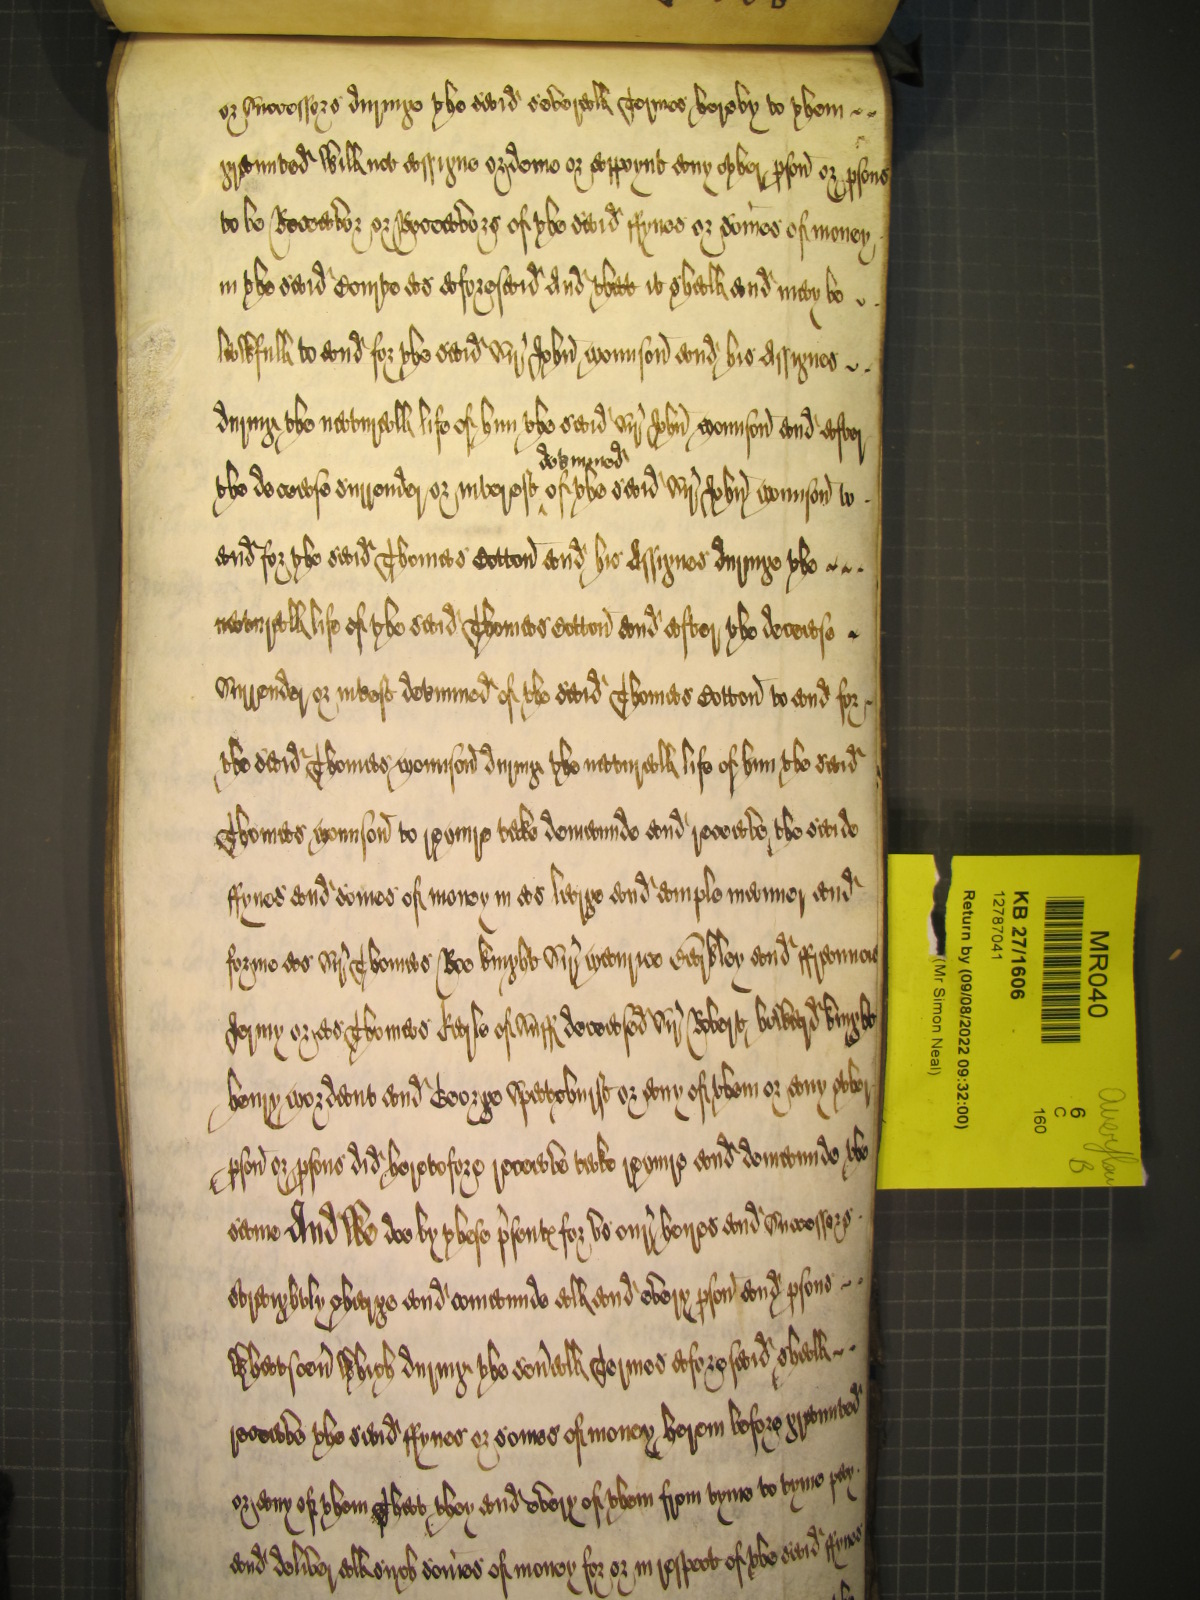 or Successors duringe the said severall Termes hereby to them
graunted Will not assigne ordeine or appoynt any other pson or psons
to be Receavor or Receavors of the said ffynes or Somes of money
in the said Compe as aforesaid And that it shall and may be
lawfull to and for the said Sir John Mounson and his Assignes
during the naturall life of him the said Sir John Mounson and after
detmined
the decease surrender or interest of the said Sir John Mounson to
and for the said Thomas Cotton and his Assignes duringe the
naturall life of the said Thomas Cotton and after the decease
Surrender or intest detmined of the said Thomas Cotton to and for
the said Thomas Mounson during the naturall life of him the said
Thomas Mounson to require take demaunde and receave the saide
ffynes and somes of money in as large and ample manner and
forme as Sir Thomas Roe knight Sir Maurice Barkley and ffrauncis
Jermy or as Thomas Earle of Suff deceased Sir Robert knight
henry Mordaunt and George or any of them or any other
pson or psons did heretofore receave take require and demaunde the
same And We doe by these psents for us our heires and Successors
straightly charge and comaunde all and every pson and psons
Whatsoevr Which during the sevrall Termes aforesaid shall
receave the said ffynes or somes of money herein before graunted
or any of them That they and every of them from tyme to tyme pay
and deliver all such somes of money for or in respect of the said ffynes
MR040
KB 27/1606
12787041
Return by (09/08/2022 09:32:00)
(Mr Simon Neal)
6
C
160
B